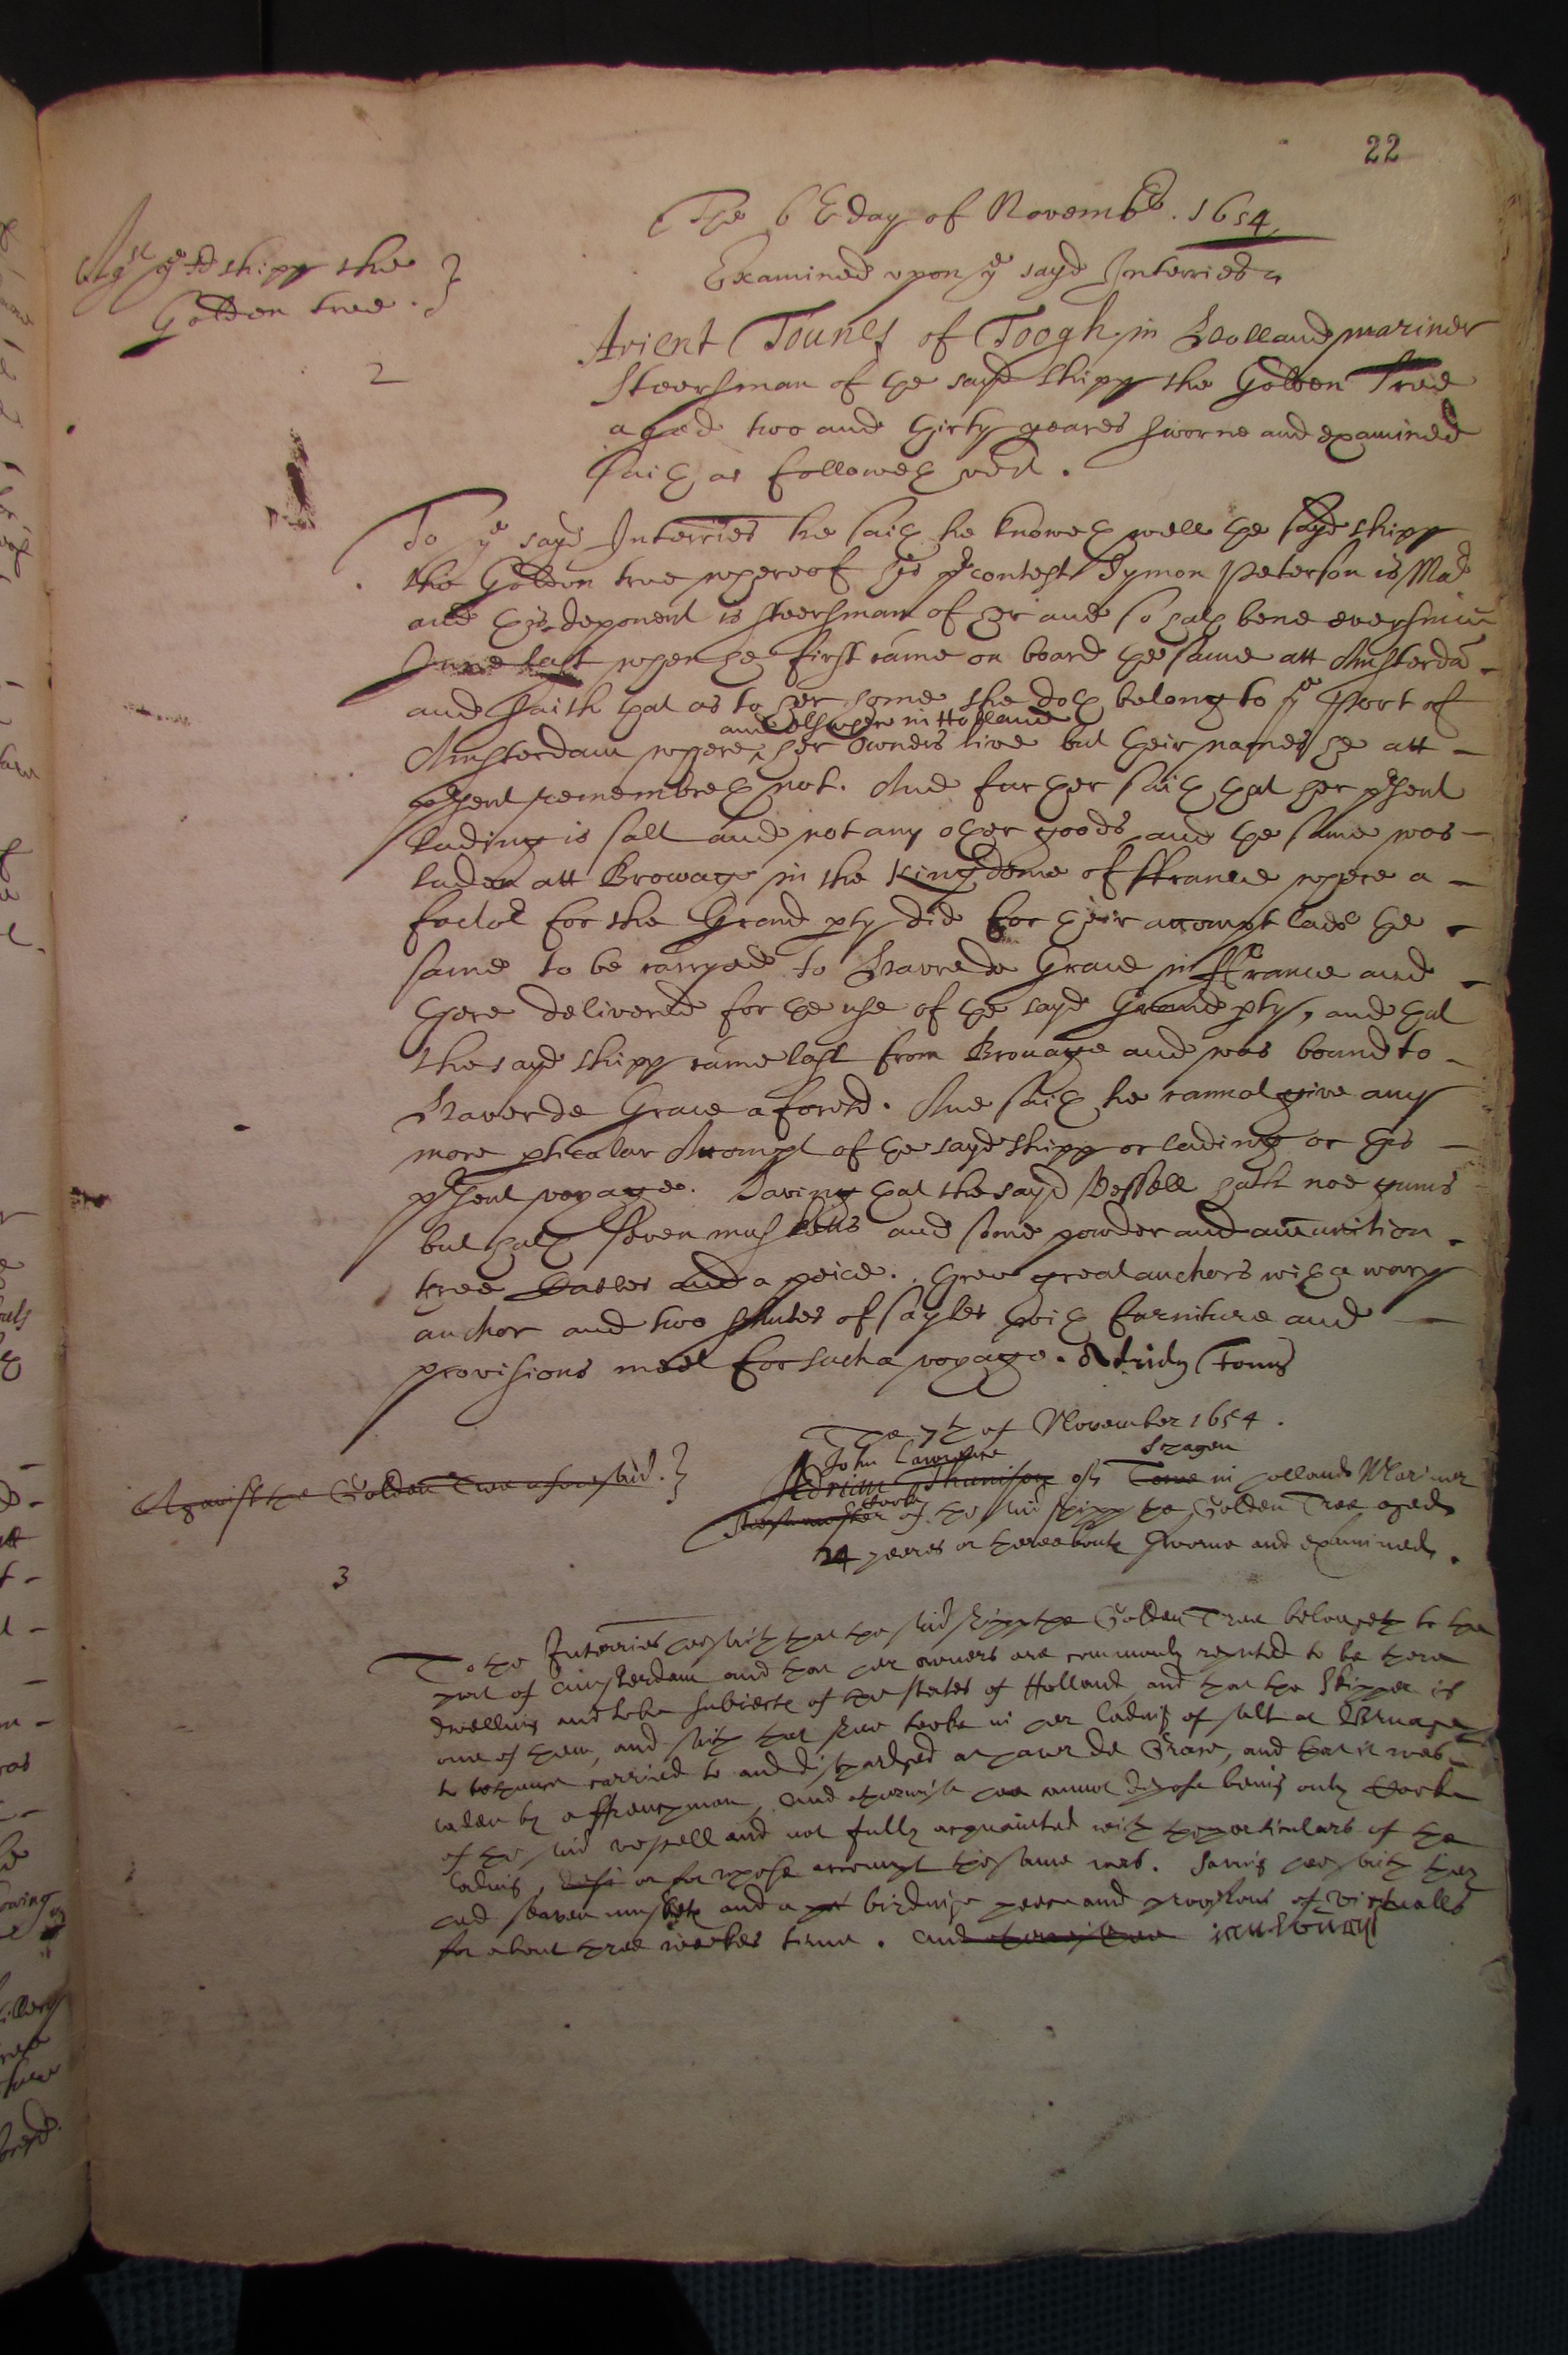 22
The 6th day of Novemb. 1654
Examined upon ye sayd Interries
Agst ye sd shipp the
Golden tree.
2
Arient Tounes of Toogh in Holland mariner
Steersman of the sayd shipp the Golden Tree
aged two and thirty yeares sworne and examined
saith as followeth vizt.
To ye sayd Interries he saith he knoweth well the sayd shipp
the Golden tree whereof his precontest Symon Peterson is Mar
and this deponent is steersman of her and so hath bene ever since
June last when he first came on board the same att Amsterda
and saith that as to her some she doth belong to ye Port of
and elswhere in Holland
Amsterdam where her Owners live but their names he att
present remembreth not. And further saith that her present
lading is salt and not any other goods and the same was
laden att Browage in the Kingdome of ffrance where a
factor for the Grand pty did for their accompt lade the
same to be carryed to Havre de Grace in ffrance and
there delivered for the use of the sayd Grand pty, and that
the sayd shipp came last from Brouage and was bound to
Haver de Grace aforesd. And saith he cannot give any
more pticular Accompt of the sayd shipp or lading or his
present voyage. Saving that the sayd Vessell hath noe gunns
but hath seven musketts and some powder and amunition
three Cables and a peice. three great anchors with a warp
anchor and two shutes of sayles with furniture and
provisions meet for such a voyage.
The 7th of November 1654.
Against the Golden Tree aforesaid.
John Lawrence Schagen
Adrian Thunison of Tone in holland Mariner
Cooke
of the said shipp the Golden Tree aged
24 yeares or thereabouts sworne and examined.
3
To the Interries hee saith that the said shipp the Golden Tree belongeth to the
port of Amsterdam and that her owners are commonly reputed to be there
dwelling and to be subiects of the States of Holland and that the Skipper is
one of them, and saith that shee tooke in her lading of salt at Bruage
to be thence carried to and discharged at haver de Grace, and that it was
laden by a ffrenchman, and otherwise hee cannot depose being only Cooke
of the said vessell and not fully acquainted with the particulars of the
lading, or for whose accompt the same was. Saving hee saith they
had seaven musketts and a birding peece and provisions of victualls
for about three weekes time. And otherwise hee